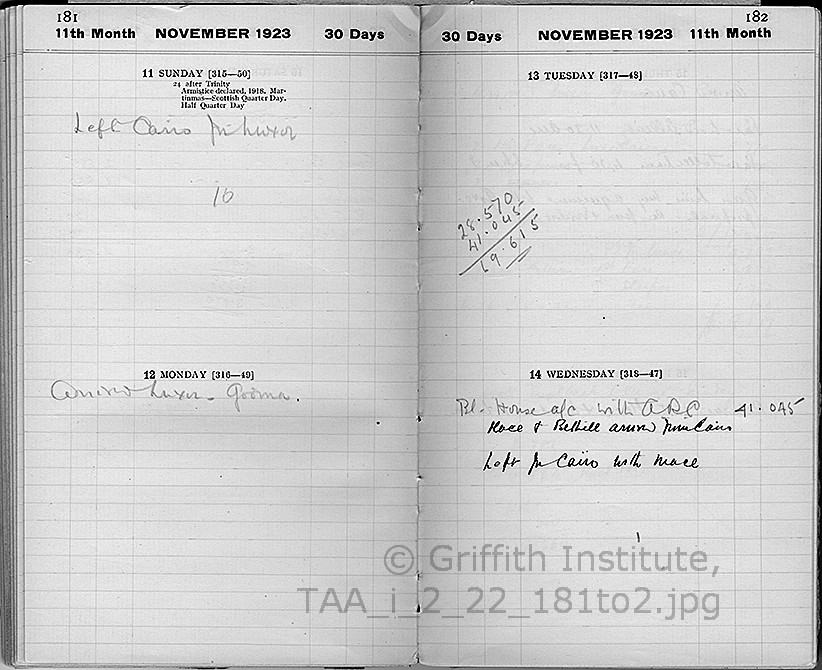 181
11th Month NOVEMBER 1923 30 Days
11 SUNDAY [315—50]
24 after Trinity
Armistice declared, 1918. Mar-
tinmas—Scottish Quarter Day.
Half Quarter Day
Left Cairo for Luxor
10
12 MONDAY [316—49]
Arrived Luxor - Goorna.
182
30 Days NOVEMBER 1923 11th Month
13 TUESDAY [317—48]
28.570
41.045
69.615
14 WEDNESDAY [318—47]
Bl. House a/c with ARC 41.045
Mace & Bethell arrived from Cairo
Left for Cairo with Mace
© Griffith Institute,
TAA_i_2_22_181to2.jpg